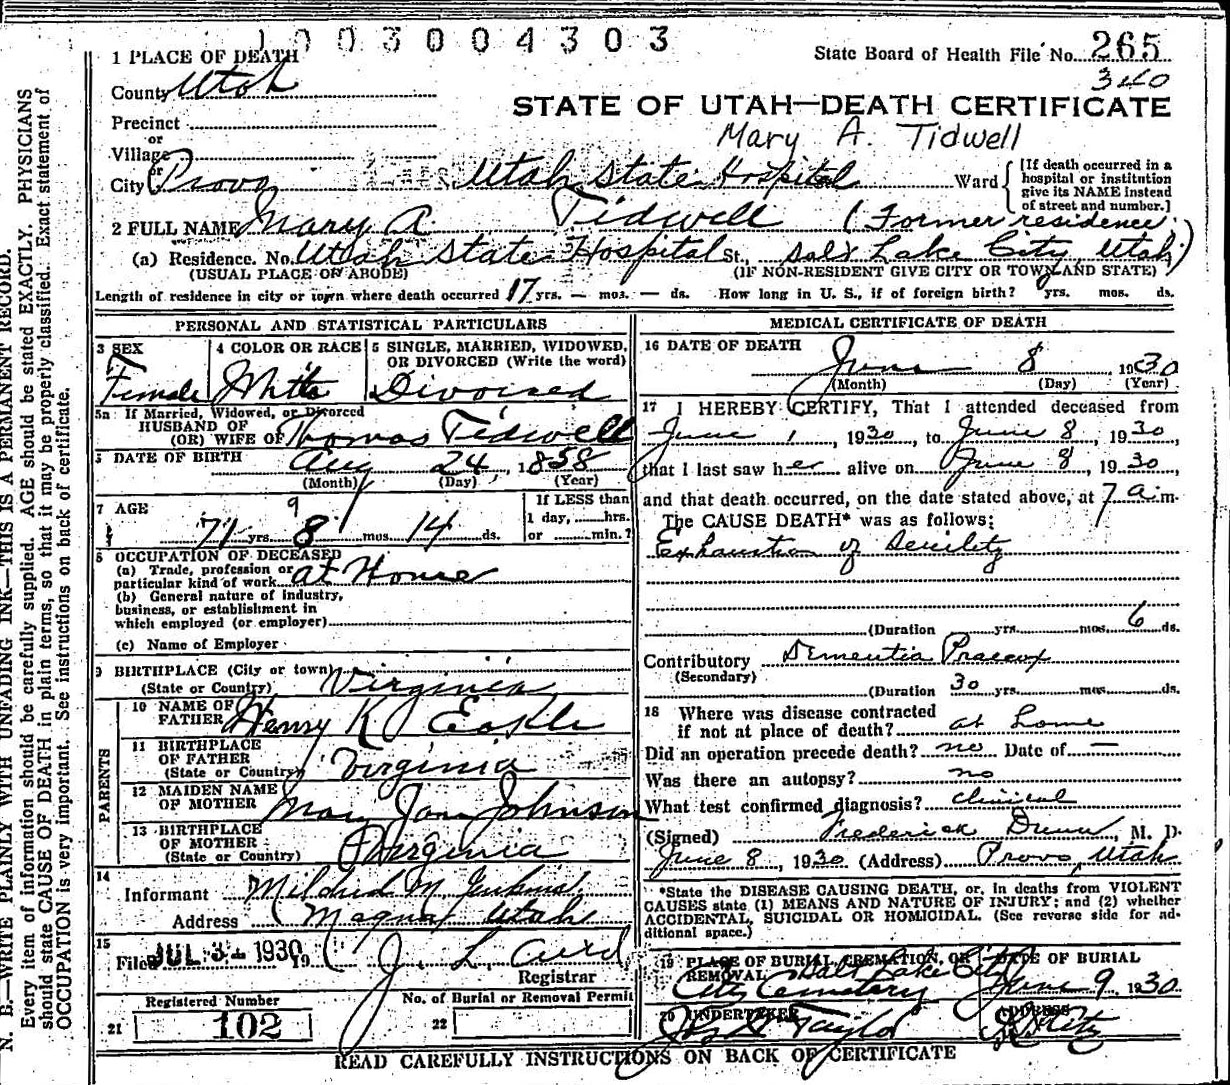 1003004303
1 PLACE OF DEATH
State Board of Health File No. 265
County Utah
340
STATE OF UTAH—DEATH CERTIFICATE
Precinct
or
Mary A. Tidwell
Village
or
City Provo Utah State Hospital Ward
[If death occurred in a
hospital or institution
give its NAME instead
of street and number.]
2 FULL NAME Mary A. Tidwell (Former residence
(a) Residence. No. Utah State Hospital St., Salt Lake City, Utah)
(USUAL PLACE OF ABODE) (IF NON-RESIDENT GIVE CITY OR TOWN AND STATE)
Length of residence in city or town where death occurred 17 yrs. — mos. — ds. How long in U. S., if of foreign birth? yrs. mos. ds.
PERSONAL AND STATISTICAL PARTICULARS
3 SEX 4 COLOR OR RACE 5 SINGLE, MARRIED, WIDOWED,
OR DIVORCED (Write the word)
Female White Divorced
5a If Married, Widowed, or Divorced
HUSBAND OF
(OR) WIFE OF Thomas Tidwell
DATE OF BIRTH Aug 24, 1858
(Month) (Day) (Year)
7 AGE 9 If LESS than
1 day, hrs.
71 yrs. 8 mos. 14 ds. or min.?
8 OCCUPATION OF DECEASED
(a) Trade, profession or
particular kind of work at Home
(b) General nature of industry,
business, or establishment in
which employed (or employer)
(c) Name of Employer
9 BIRTHPLACE (City or town)
(State or Country) Virginia
PARENTS
10 NAME OF
FATHER Henry K Eakle
11 BIRTHPLACE
OF FATHER
(State or Country) Virginia
12 MAIDEN NAME
OF MOTHER Mary Jane Johnson
13 BIRTHPLACE
OF MOTHER
(State or Country) Virginia
14
Informant Mildred M.
Address Magna, Utah
15
Filed JUL 31 1930 19 J. L. Aird
Registrar
Registered Number No. of Burial or Removal Permit
21 102 22
MEDICAL CERTIFICATE OF DEATH
16 DATE OF DEATH
June 8 1930
(Month) (Day) (Year)
17 I HEREBY CERTIFY, That I attended deceased from
June 1, 1930, to June 8, 1930,
that I last saw her alive on June 8, 1930,
and that death occurred, on the date stated above, at 7 a.m.
The CAUSE DEATH* was as follows:
Exhaustion of Senility
(Duration yrs. mos. 6 ds.
Contributory Dementia Praecox
(Secondary)
(Duration 30 yrs. mos. ds.
18 Where was disease contracted
if not at place of death? at home
Did an operation precede death? no Date of —
Was there an autopsy? no
What test confirmed diagnosis? clinical
(Signed) Frederick Dunn, M. D.
June 8, 1930 (Address) Provo, Utah
*State the DISEASE CAUSING DEATH, or, in deaths from VIOLENT
CAUSES state (1) MEANS AND NATURE OF INJURY; and (2) whether
ACCIDENTAL, SUICIDAL OR HOMICIDAL. (See reverse side for ad-
ditional space.)
19 PLACE OF BURIAL, CREMATION, OR DATE OF BURIAL
REMOVAL Salt Lake City
City Cemetery June 9 1930
20 UNDERTAKER ADDRESS
Taylor
READ CAREFULLY INSTRUCTIONS ON BACK OF CERTIFICATE
N. B.—WRITE PLAINLY WITH UNFADING INK—THIS IS A PERMANENT RECORD.
Every item of information should be carefully supplied. AGE should be stated EXACTLY. PHYSICIANS
should state CAUSE OF DEATH in plain terms, so that it may be properly classified. Exact statement of
OCCUPATION is very important. See instructions on back of certificate.